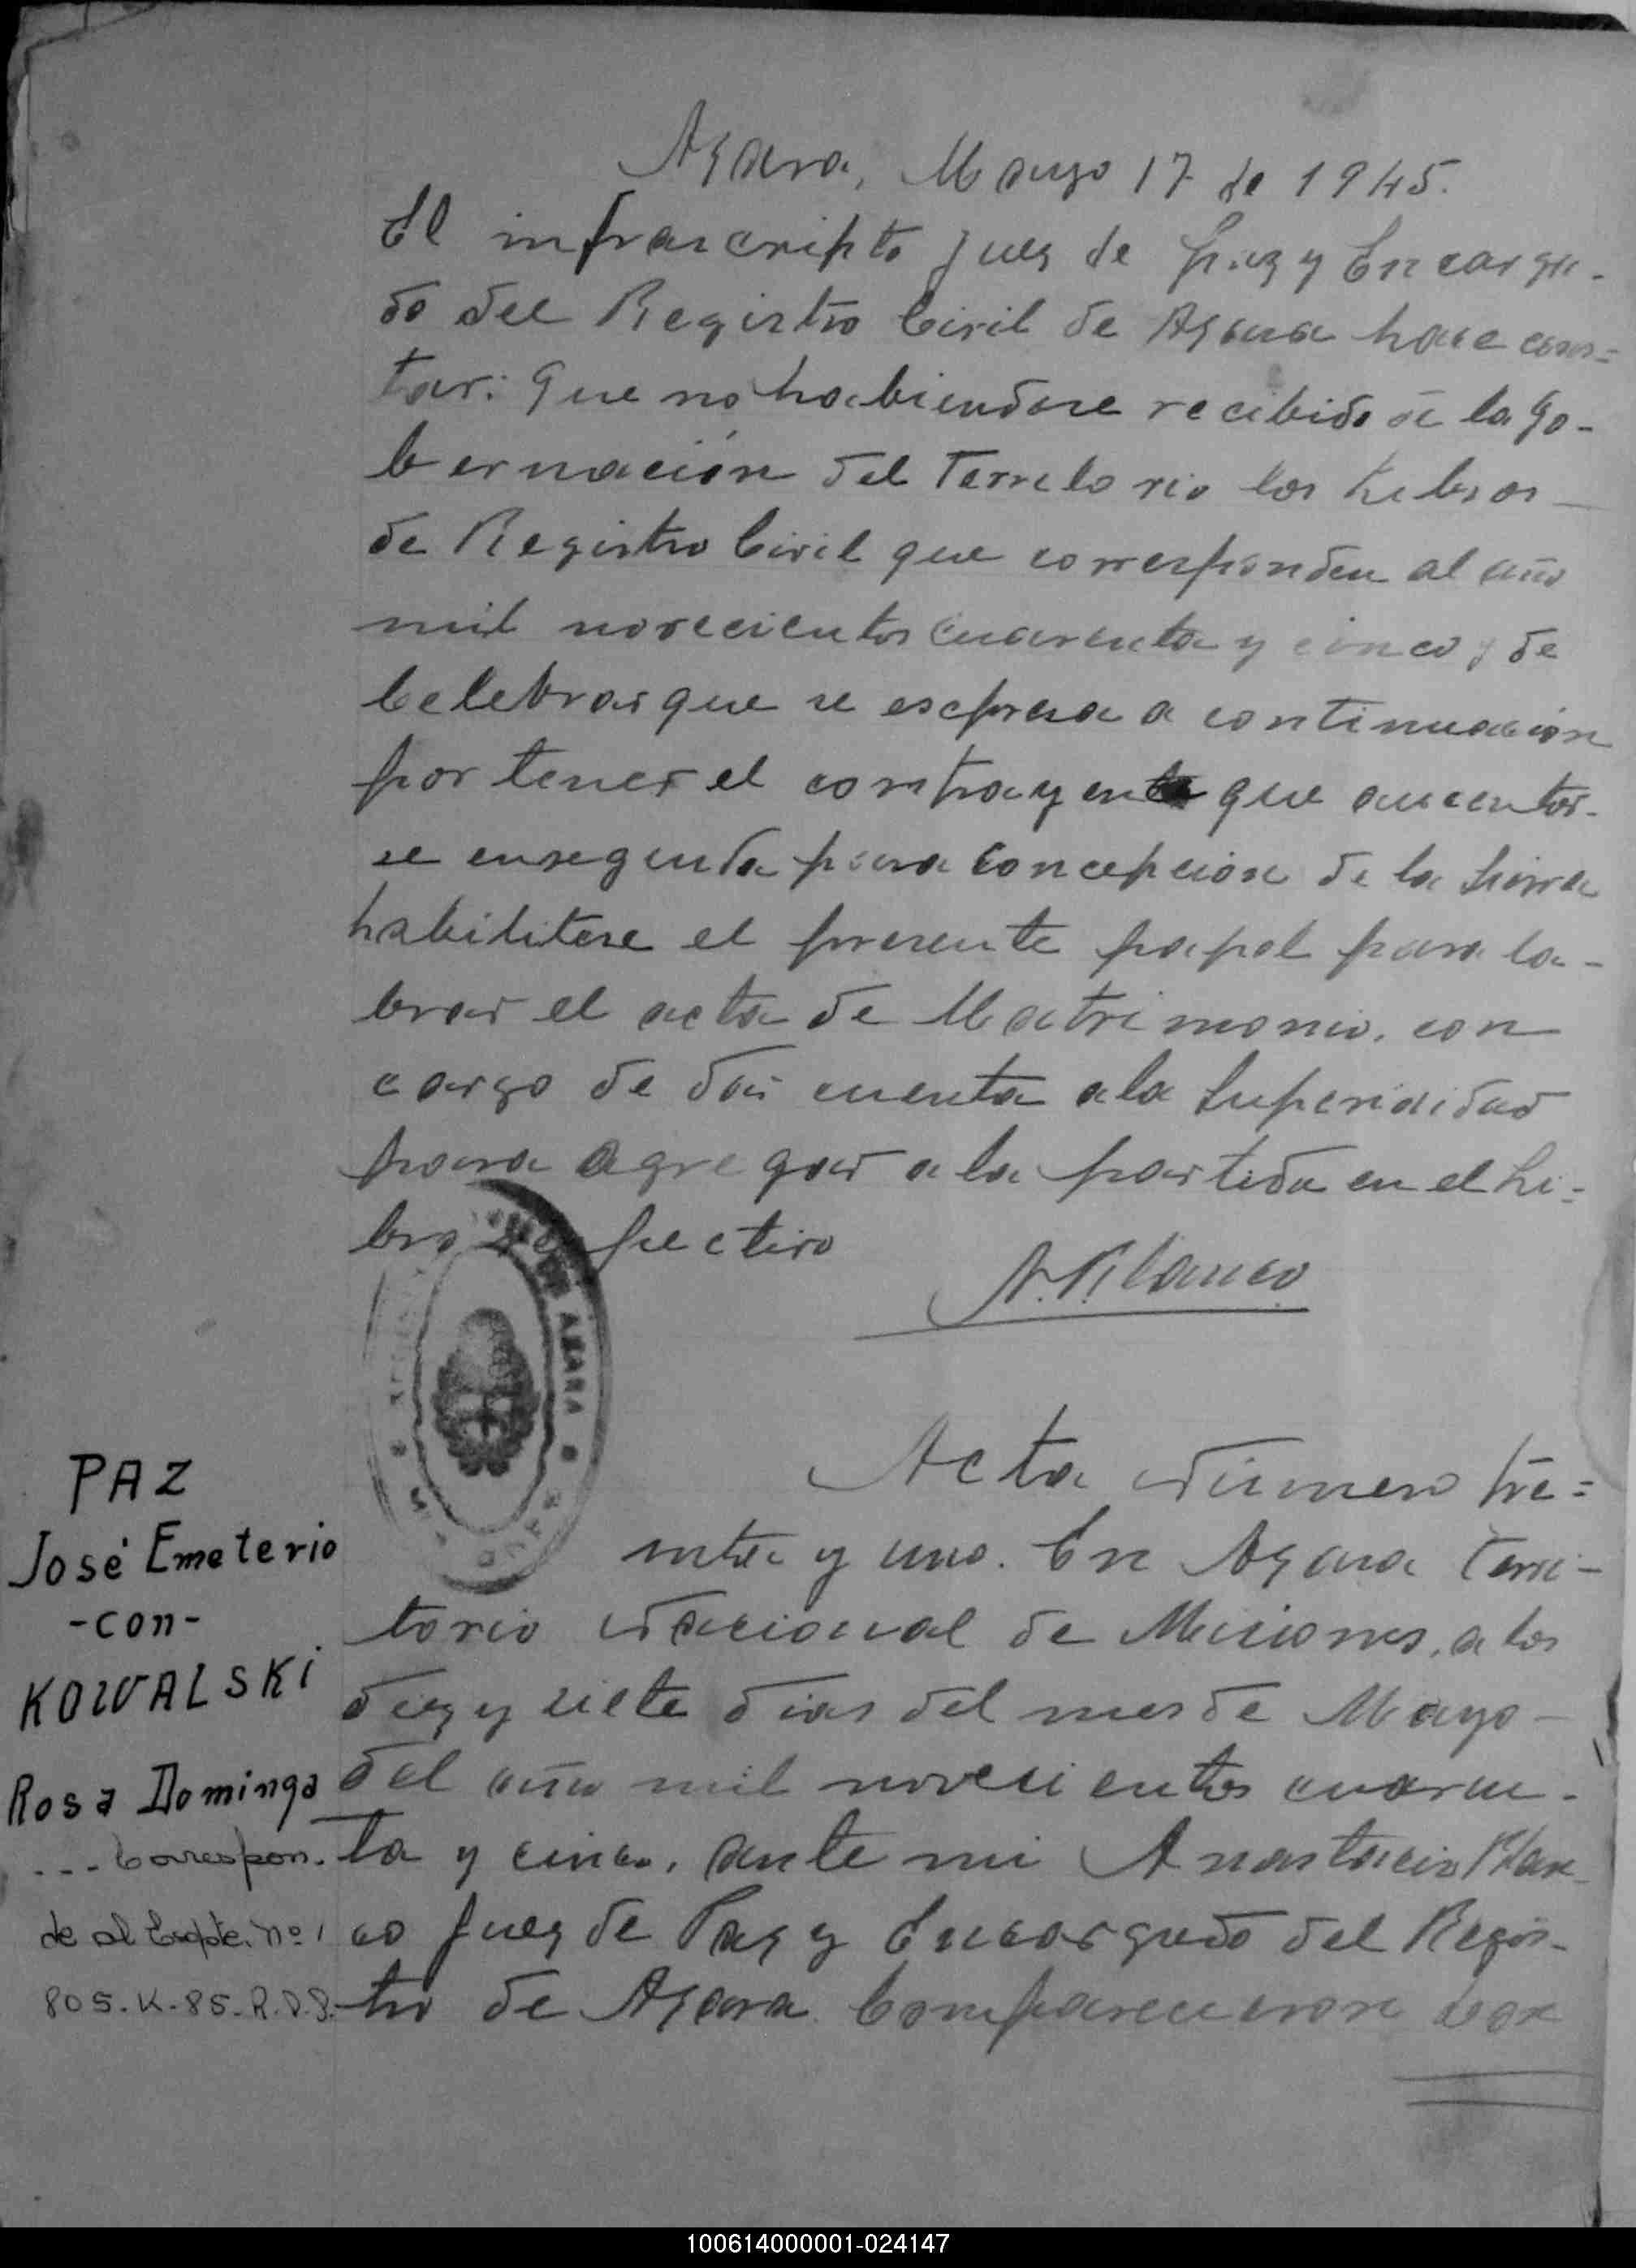 Azara, Mayo 17 de 1945.
El infrascripto Juez de Paz y Encarga-
do del Registro Civil de Azara hace cons=
tar: Que no habiendose recibido de la Go-
bernación del Territorio los Libros
de Registro Civil que corresponden al año
mil novecientos cuarenta y cinco y de
Celebrar que se espresa a continuación
por tener el contrayente que ausentar-
se enseguida para Concepcion de la Sierra
habilitese el presente papel para la-
brar el acta de Matrimonio, con
cargo de dar cuenta a la Superioridad
para agregar a la partida en el Li=
bro respectivo
A. Blanco
AZARA
PAZ
José Emeterio
-con-
KOWALSKI
Rosa Dominga
... Correspon.
de al Expte. Nº 1
805-K-85-R.D.S.
Acta Número tre=
inta y uno. En Azara Terri-
torio Nacional de Misiones, a los
diez y siete dias del mes de Mayo
del año mil novecientos cuaren-
ta y cinco, ante mi Anastacio Blan-
co Juez de Paz y Encargado del Regis-
tro de Azara Comparecieron Don
100614000001-024147